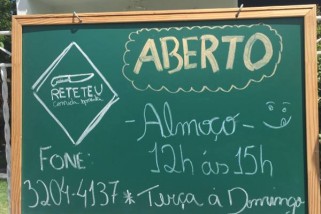 ABERTO
RETETEU
comida esperta
-Almoço-
FONE:
12h às 15h
3204-4137 * Terça á Domingo